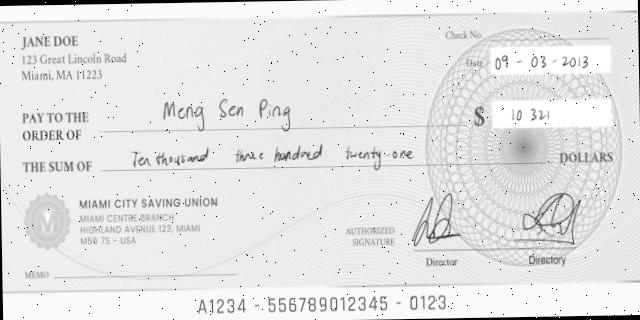 JANE DOE
123 Great Lincoln Road
Miami, MA 11223
Check No.
Date 09 - 03 - 2013
PAY TO THE
ORDER OF Meng Sen Ping
$ 10 321
THE SUM OF Ten thousand three hundred twenty one DOLLARS
MIAMI CITY SAVING UNION
MIAMI CENTRE BRANCH
HIGHLAND AVENUE 123, MIAMI
M56 7S - USA
AUTHORIZED
SIGNATURE
Director
Directory
MEMO
A1234 - 556789012345 - 0123